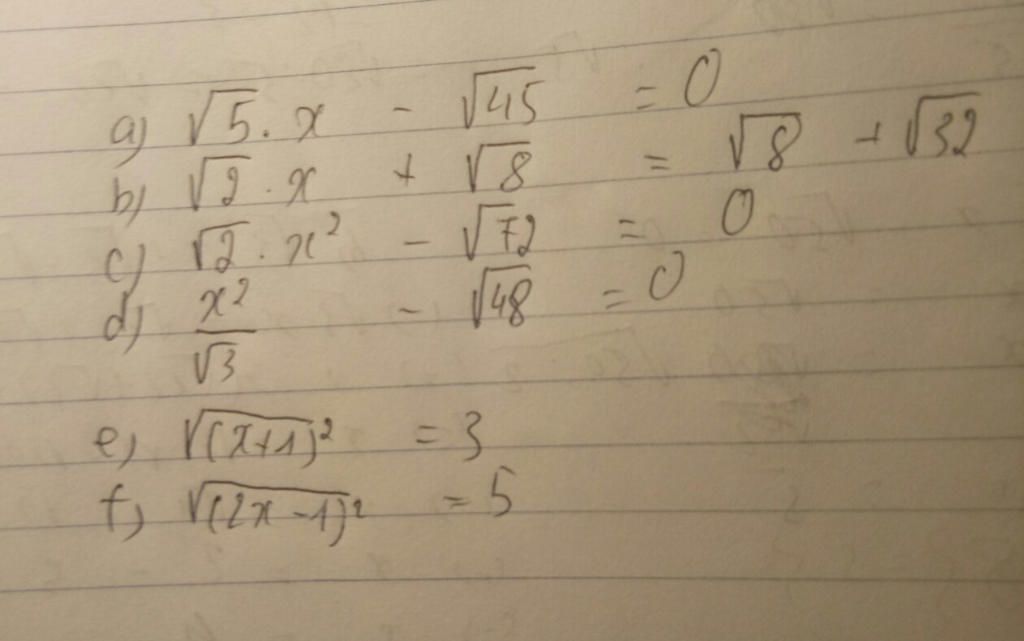 a) √5 . x - √45 = 0
b) √2 . x + √8 = √8 + √32
c) √2 . x² - √72 = 0
d) x²/√3 - √48 = 0
e) √(x+1)² = 3
f) √(2x-1)² = 5